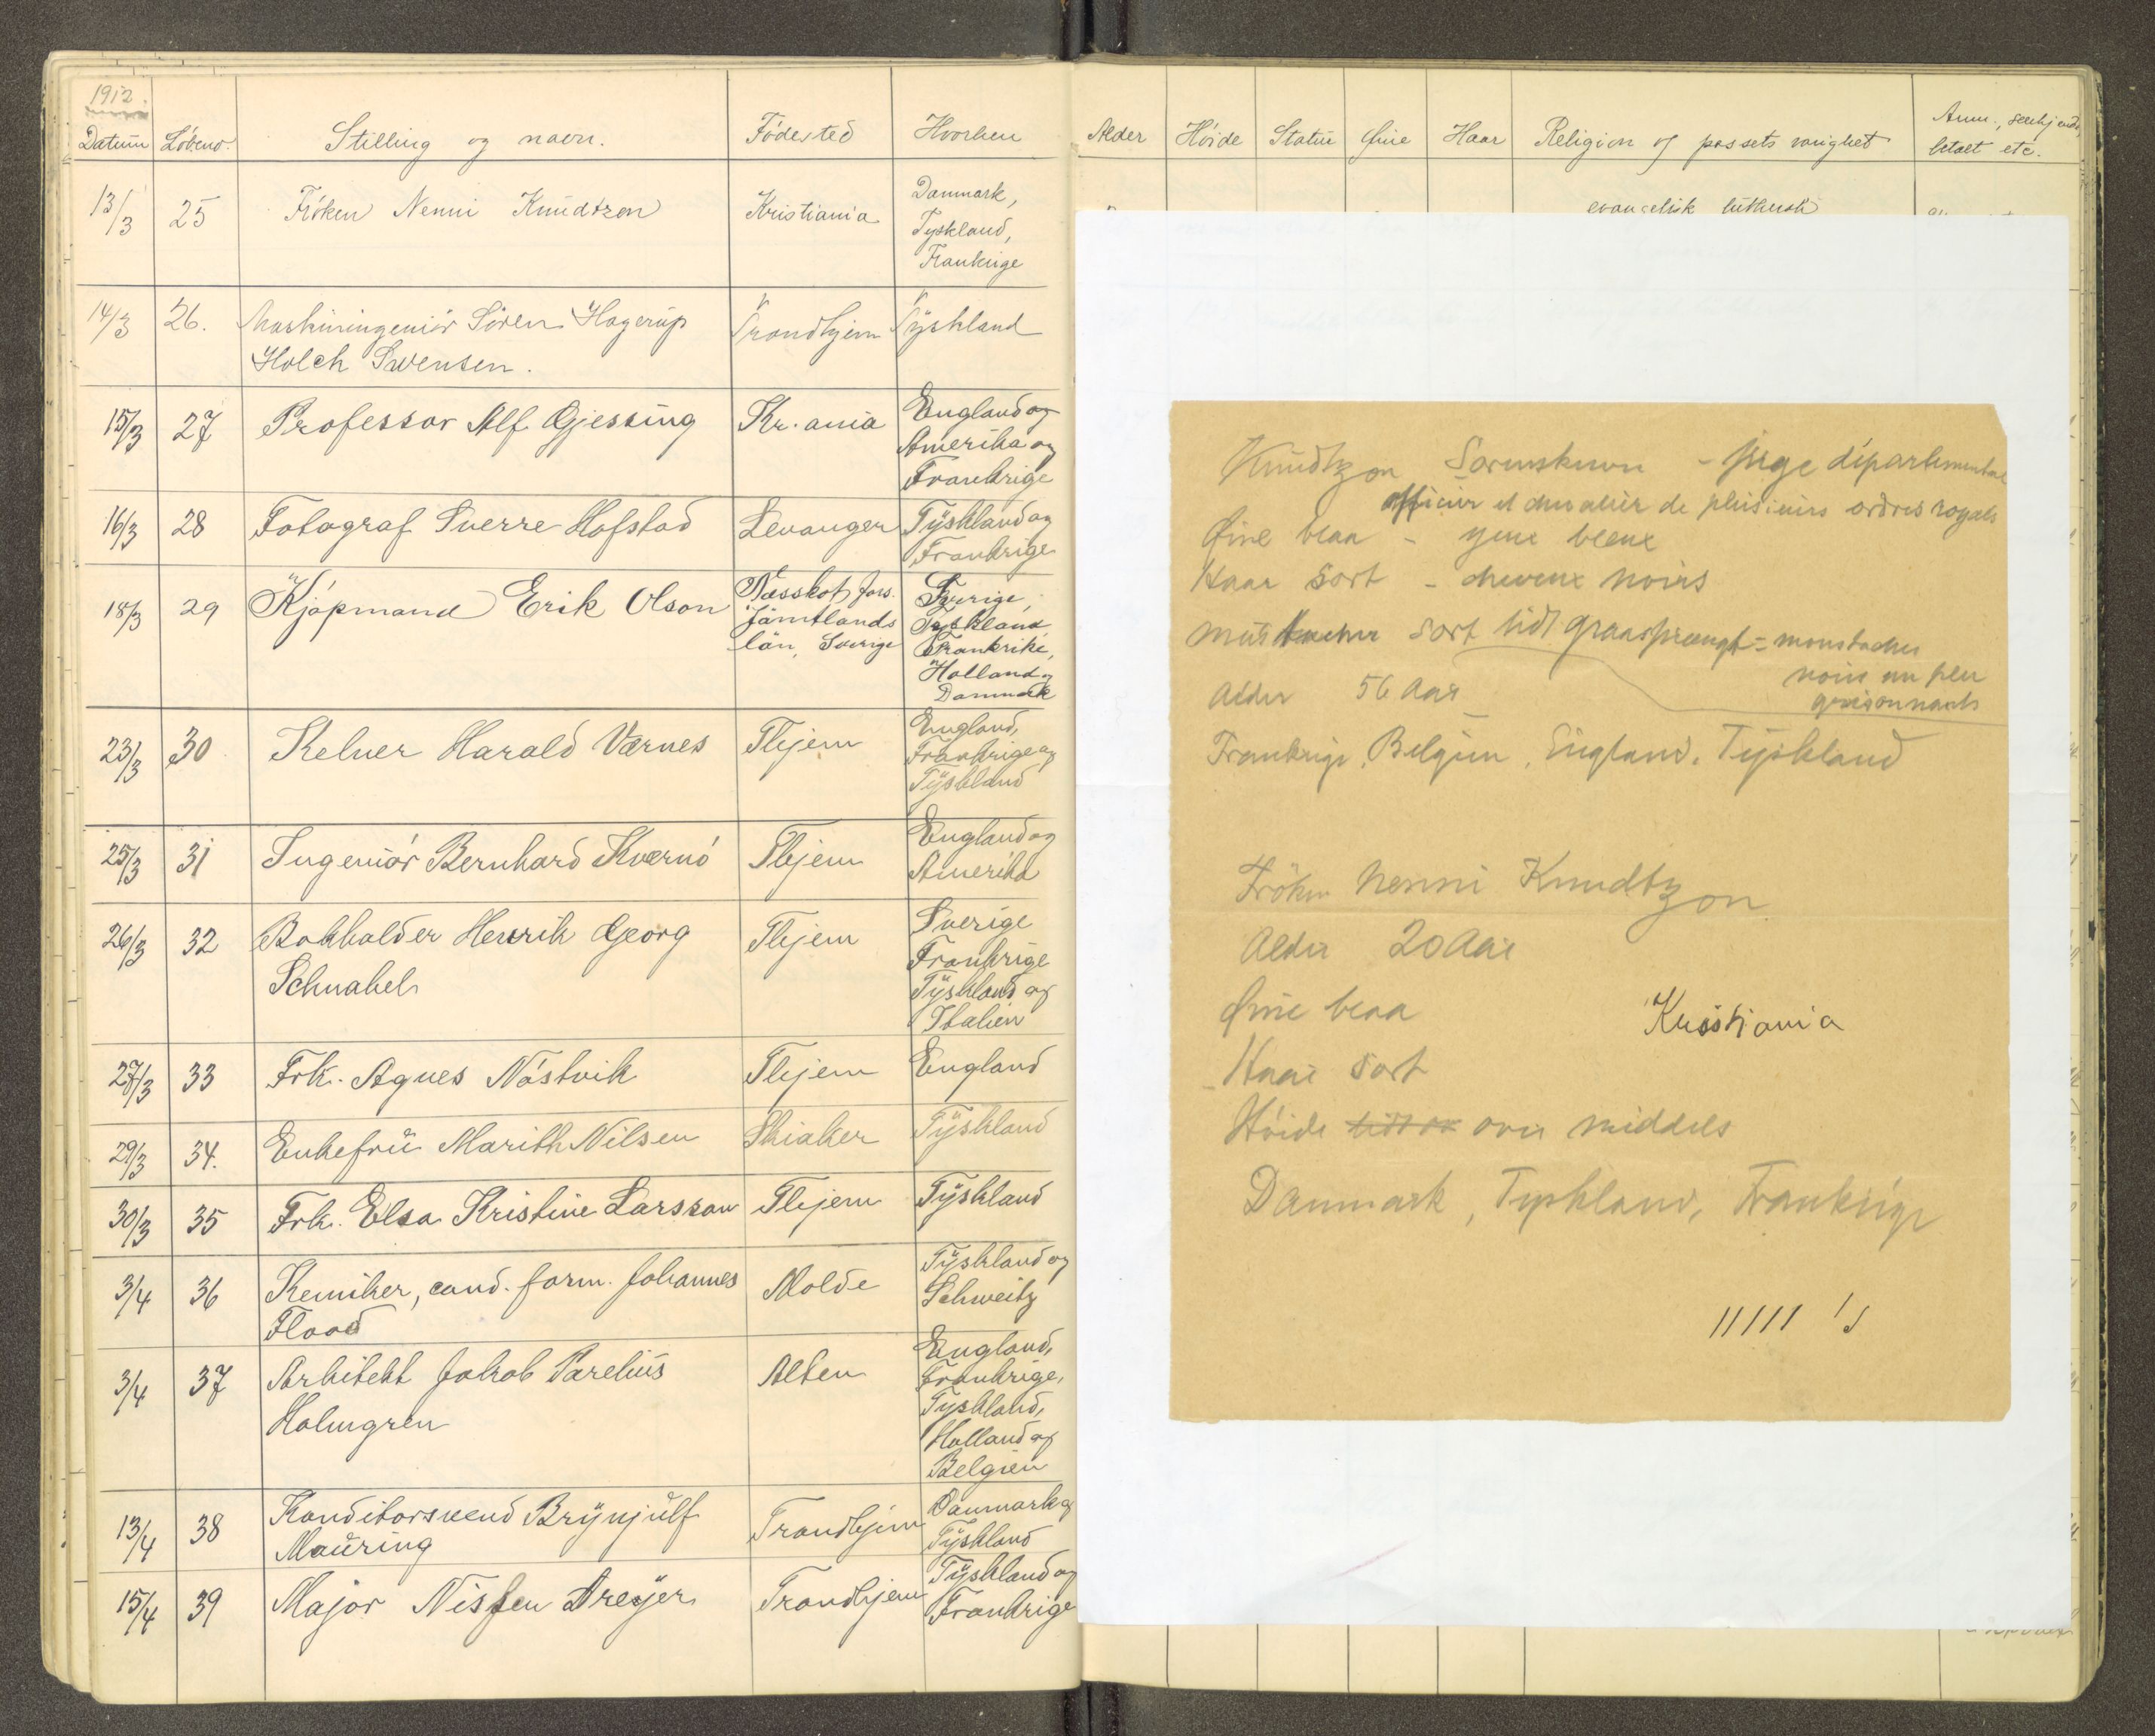 1912.
Datum Löbeno. Stilling og navn. Födested Hvorhen
13/3 25 Fröken Nenni Knudtzon Kristiania Danmark,
Tyskland,
Frankrige
14/3 26. Maskiningeniör Sören Hagerup Trondhjem Tyskland
Holch Svensen.
15/3 27 Professor Alf Gjessing Kr.ania England og
Amerika og
Frankrige
16/3 28 Fotograf Sverre Hofstad Levanger Tyskland og
Frankrige
18/3 29 Kjöpmand Erik Olson Næskot fors. Sverige,
Jämtlands Tyskland
län, Sverige Frankrike,
Holland og
Danmark
23/3 30 Kelner Harald Værnes Thjem England,
Frankrige og
Tyskland
25/3 31 Ingeniör Bernhard Kvernö Thjem England og
Amerika
26/3 32 Bokholder Henrik Georg Thjem Sverige
Schnabel Frankrige
Tyskland og
Italien
27/3 33 Frk. Agnes Nöstvik Thjem England
29/3 34. Enkefru Marith Nilsen Skiaker Tyskland
30/3 35 Frk. Elsa Kristine Larsson Thjem Tyskland
3/4 36 Kemiker, cand. farm. Johannes Molde Tyskland og
Flood Schweitz
3/4 37 Arkitekt Jakob Parelius Alten England,
Holmgren Frankrige,
Tyskland,
Holland og
Belgien
13/4 38 Konditorsvend Brynjulf Trondhjem Danmark og
Mauring Tyskland
15/4 39 Major Nissen Dreyer Trondhjem Tyskland og
Frankrige
Alder Höide Statur Øine Haar Religion og passets varighet Anm.,
betalt etc.
evangelisk luthersk
Knudtzon Sorenskriver - juge départemental
officier et chevalier de plusieurs ordres royals
Øine blaa - yeux bleux
Haar sort - cheveux noirs
mustacher sort lidt graasprængt = moustaches
noirs un peu
grisonnants
Alder 56 Aar
Frankrige, Belgien, England, Tyskland
Fröken Nenni Knudtzon
Alder 20 Aar
Øine blaa
Kristiania
Haar sort
Höide over middels
Danmark, Tyskland, Frankrige